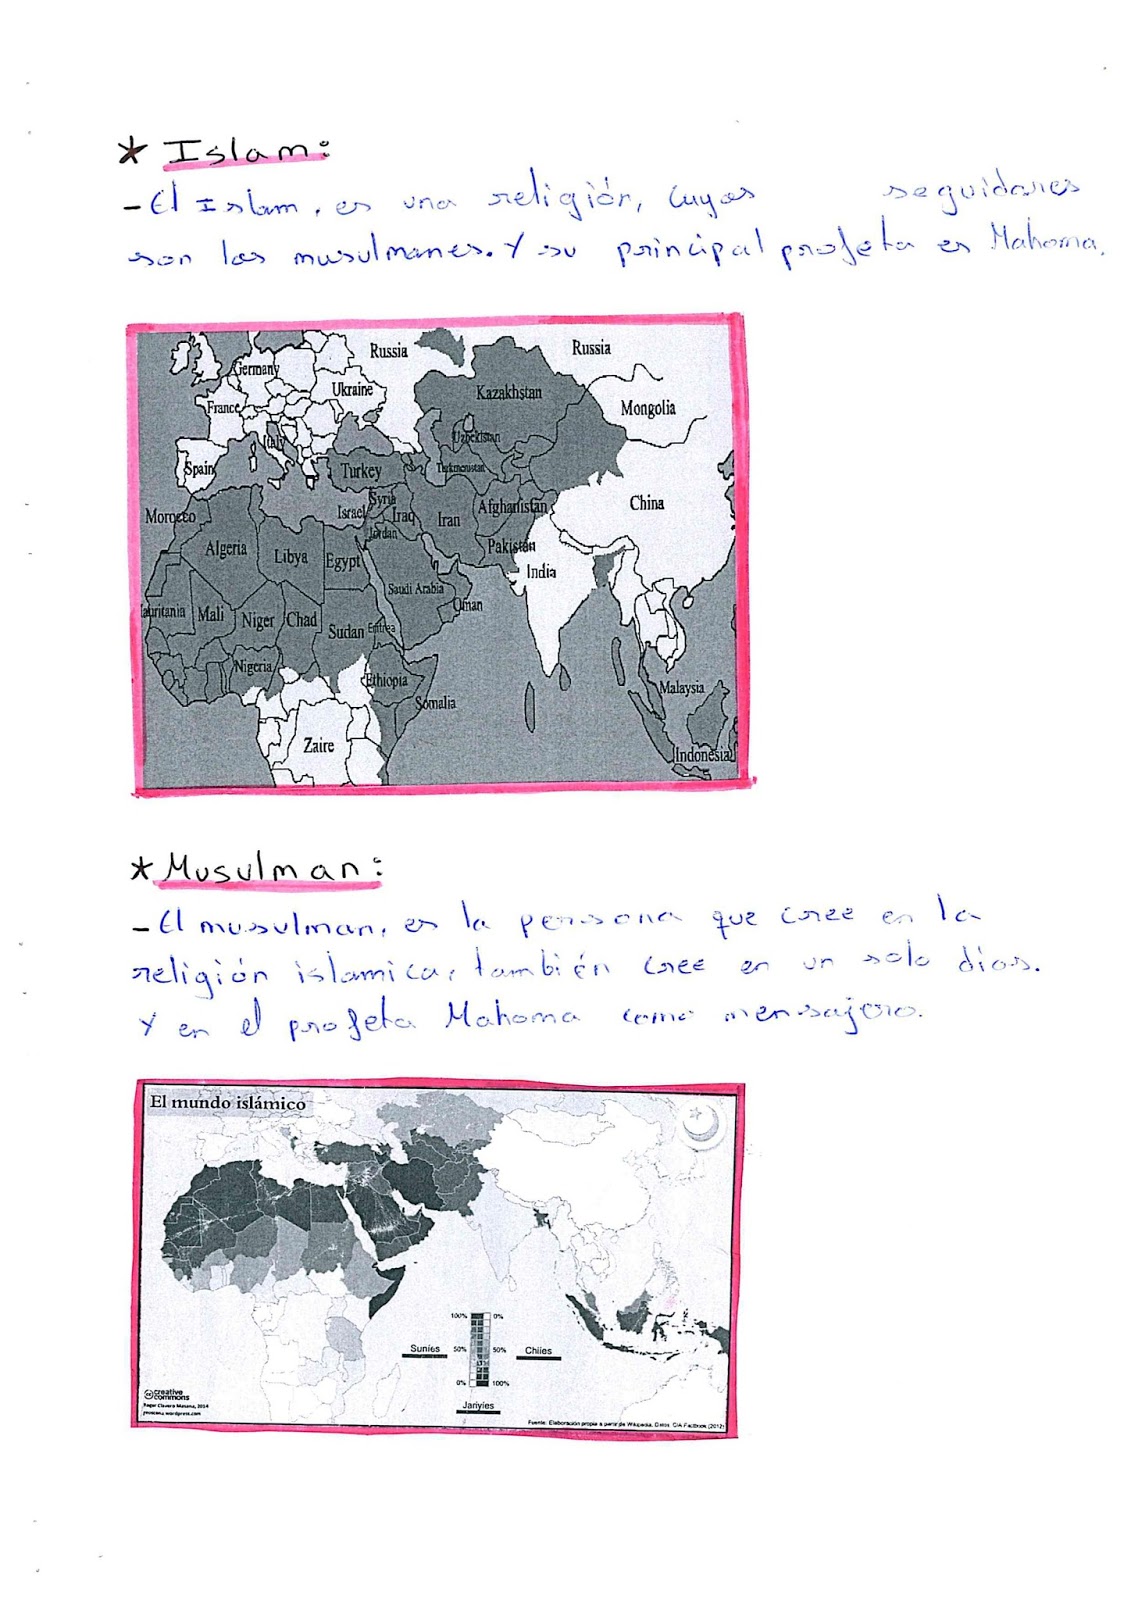 * Islam:
- El Islam, es una religión, cuyos seguidores
son los musulmanes. Y su principal profeta es Mahoma.
Russia
Russia
Germany
Ukraine
Kazakhstan
France
Mongolia
Italy
Uzbekistan
Spain
Turkey
Turkmenistan
Syria
China
Morocco
Israel
Iraq
Iran
Afghanistan
Jordan
Algeria
Libya
Egypt
Pakistan
India
Saudi Arabia
Oman
auritania
Mali
Niger
Chad
Sudan
Eritrea
Nigeria
Ethiopia
Malaysia
Somalia
Zaire
Indonesia
* Musulman:
- El musulman, es la persona que cree en la
religión islamica, también cree en un solo dios.
Y en el profeta Mahoma como mensajero.
El mundo islámico
100% 0%
Suníes 50% 50% Chiíes
0% 100%
Jariyíes
cc creative commons
Roger Clavero Masana, 2014
Fuente: Elaboración propia a partir de Wikipedia. Datos: CIA Factbook (2012)